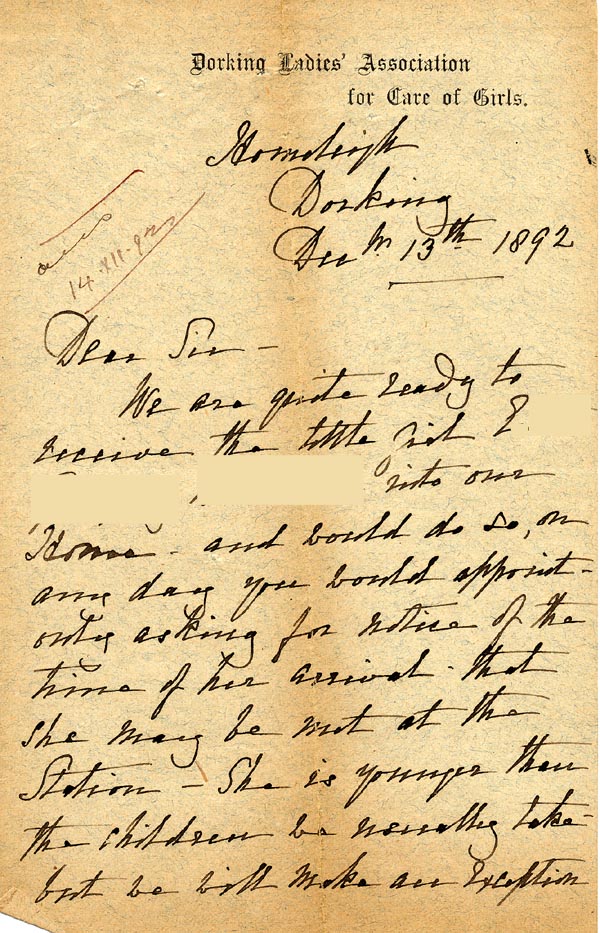 Dorking Ladies' Association
for Care of Girls.
Homeleigh
Dorking
Decm 13th 1892
14.XII.92
Dear Sir -
We are quite ready to
receive the little girl E
into our
Home - and would do so, on
any day you would appoint -
only asking for notice of the
time of her arrival - that
she may be met at the
Station - She is younger than
the children we usually take -
but we will make an exception